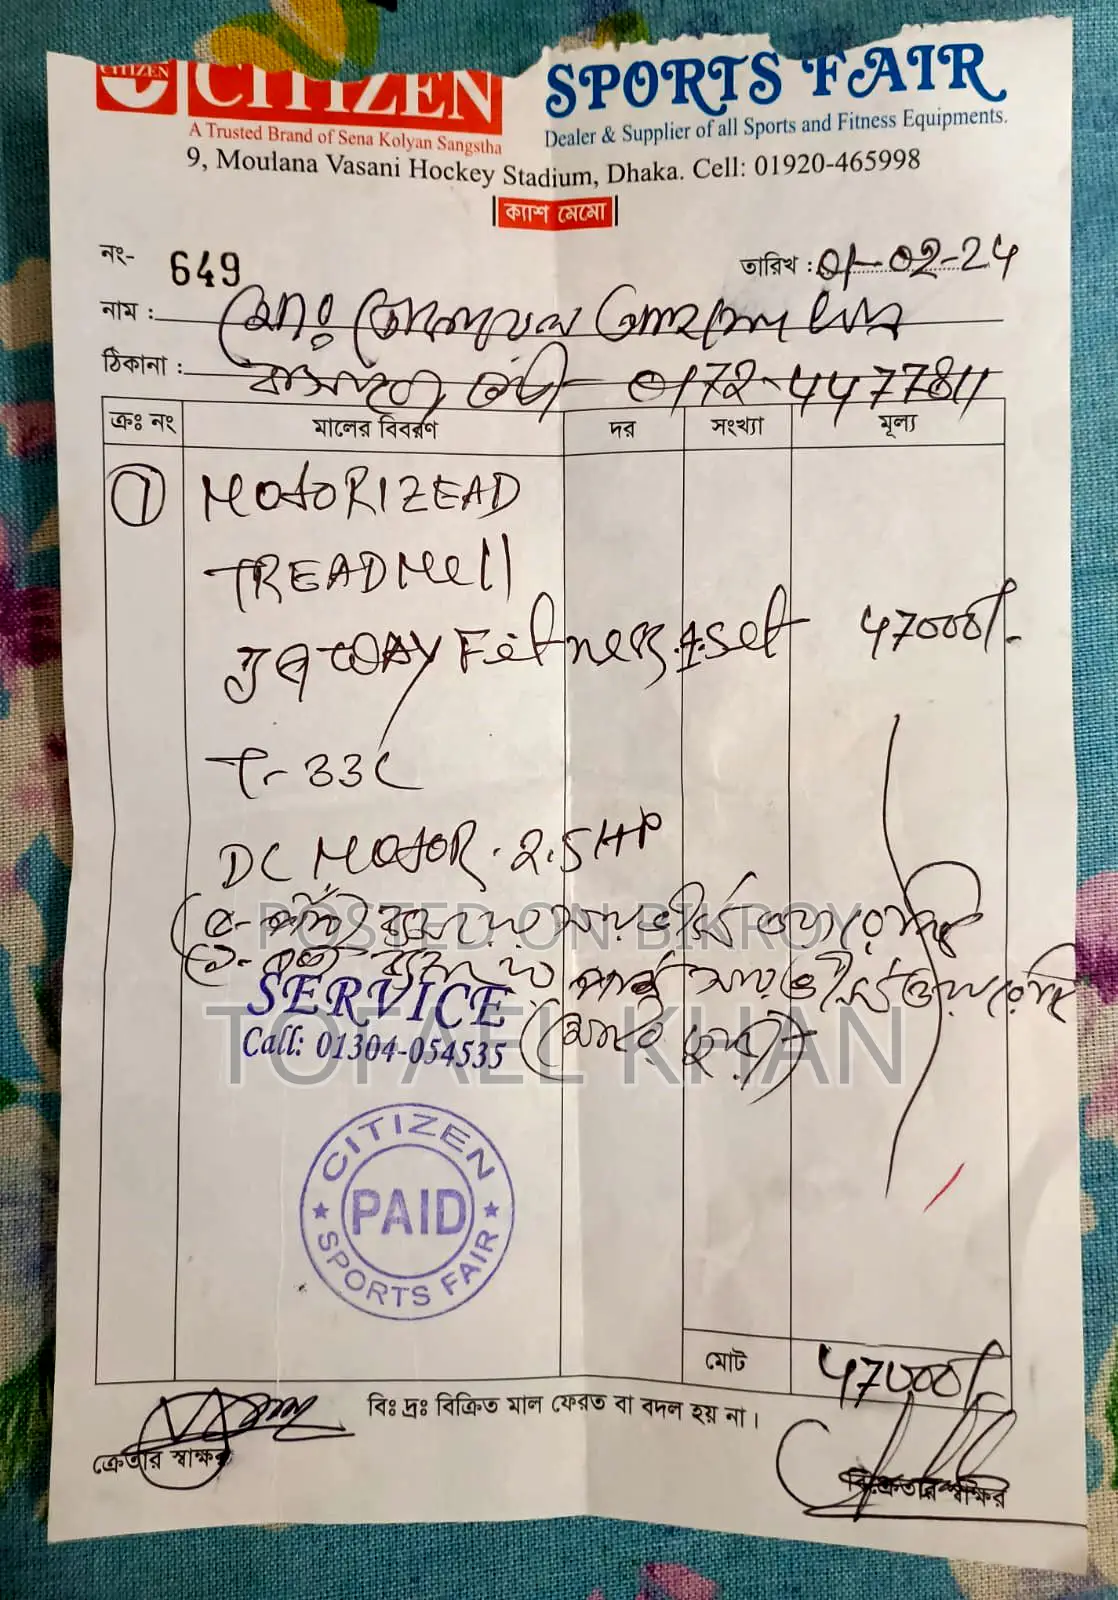 CITIZEN
CITIZEN
SPORTS FAIR
A Trusted Brand of Sena Kolyan Sangstha
Dealer & Supplier of all Sports and Fitness Equipments.
9, Moulana Vasani Hockey Stadium, Dhaka. Cell: 01920-465998
ক্যাশ মেমো
নং- 649
তারিখ : 01-02-24
নাম : মোঃ
ঠিকানা :
ক্রঃ নং মালের বিবরণ দর সংখ্যা মূল্য
1 MOtORIZEAD
TREADMell
JAWAY Fitness. 1 set 47000/-
T-33C
DC MOtOR. 2.5 HP
POSTED ON BIKROY
SERVICE
TOFAEL KHAN
Call: 01304-054535
CITIZEN
PAID
SPORTS FAIR
মোট 47000/-
বিঃ দ্রঃ বিক্রিত মাল ফেরত বা বদল হয় না।
ক্রেতার স্বাক্ষর
বিক্রেতার স্বাক্ষর